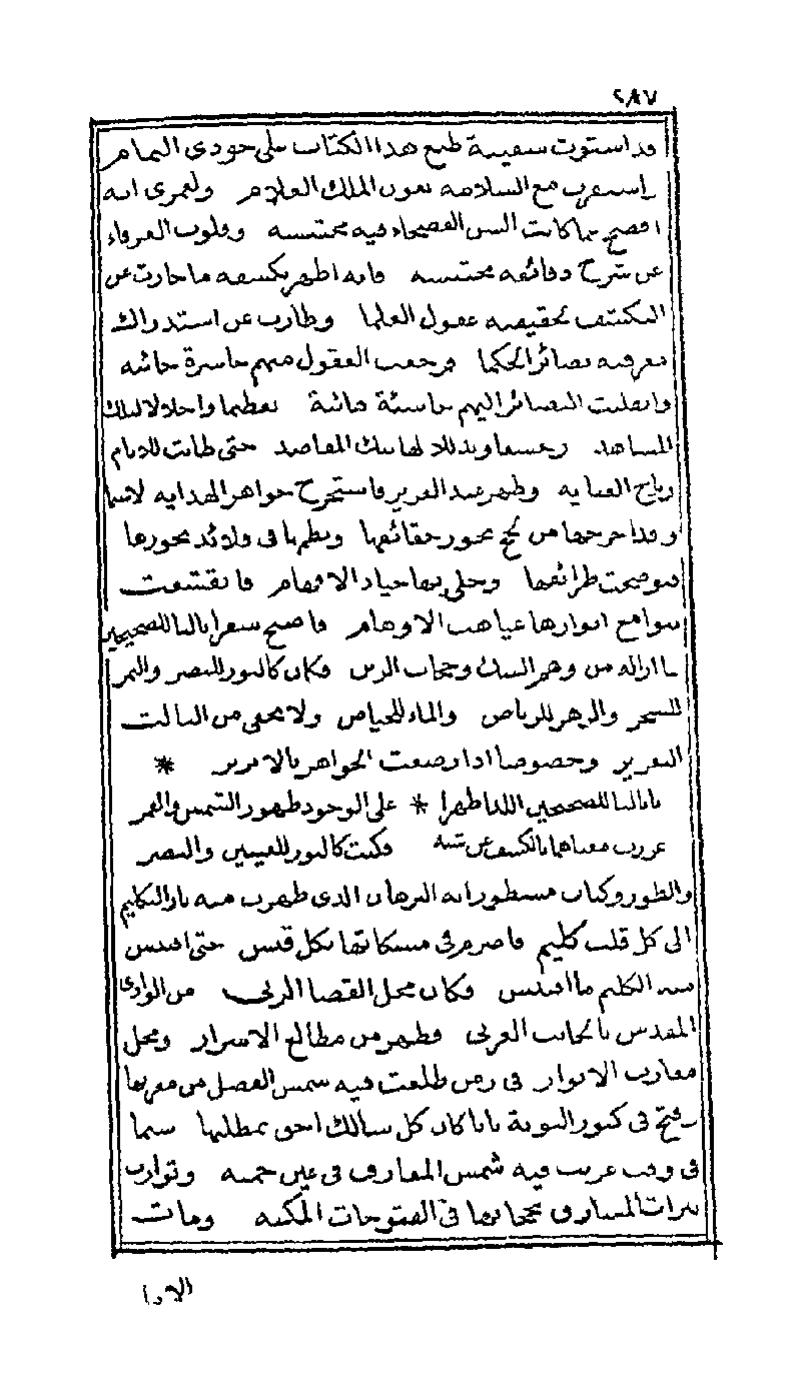 ٢٨٧
قد استوت سفينة طبع هذا الكتاب على جودى التمام
واستقرت مع السلامه بعون الملك العلام ولعمرى انه
افصح عما كانت السن الفصحاء فيه محتبسه وقلوب العرفاء
عن شرح دقائقه محتبسه فانه اظهر بكشفه ما حارت عن
الكشف لحقيقته عقول العلما وطارت عن استدراك
معرفته بصائر الحكما فرجعت العقول منهم حاسرة خائبه
وانقلبت البصائر اليهم خاسئة تعظيما واجلالا لتلك
المشاهد وتذللا لهاتيك المقاصد حتى طابت للانام
رياح العنايه وظهر عبد العزيز فاستخرج جواهر الهدايه لاسيما
وقد اخرجها من لجج بحور حقائقها ونظمها فى قلائد نحورها
فوضحت طرائقها وحلى بها جياد الافهام فانقشعت
بسواطع انوارها غياهب الاوهام فاصبح سفرا تاليا للصحيحين
لما ازاله من وهم الشك وحجاب الرين فكان كالنور للبصر والثمر
للشجر والزهر للرياض والماء للحياض ولا يخفى من الثالث
التعزيز وخصوصا اذا رصعت الجواهر بالابريز *
يا تاليا للصحيحين اللذا ظهرا * على الوجود ظهور الشمس والقمر
عززت معناهما بالكشف عن شبه فكنت كالنور للعينين والبصر
والطور وكتاب مسطور انه البرهان الذى ظهرت منه نار التكليم
الى كل قلب كليم فاضرم فى مشكاتها بكل قبس حتى اقتبس
منه الكليم ما اقتبس فكان محل القصا الربى من الوادى
المقدس بالجانب الغربى فظهر من مطالع الاسرار ومحل
مغارب الانوار فى زمن طلعت فيه شمس الفضل من مغربها
وفتح فى كنوز النبوية بابا كان كل سالك احق بمطلبها سيما
فى وقت غربت فيه شمس المعارف فى عين حمئه وتوارت
نيرات المشارق بحجابها فى الفتوحات المكيه وماتت